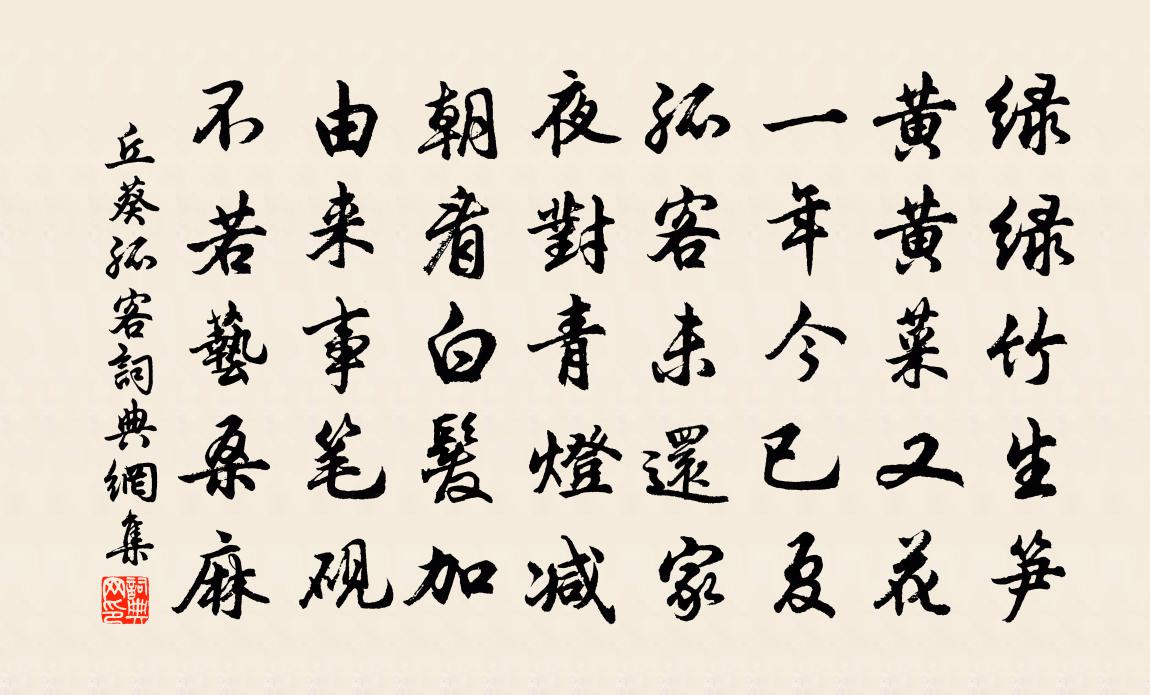 绿绿竹生笋
黄黄菜又花
一年今已夏
孤客未還家
夜對青燈减
朝看白髮加
由来事笔砚
不若藝桑麻
丘葵孤客詞典網集
詞典网印